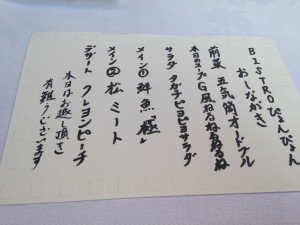 BISTROぴょんぴょん
おしながき
前菜 五気筒オードブル
本日のスープ G風ねるねるねるね
サラダ タガチピヨピヨサラダ
メイン① 鮮魚「極」
メイン② 松ミート
デザート クレヨンピーチ
本日はお越し頂き
有難うございます